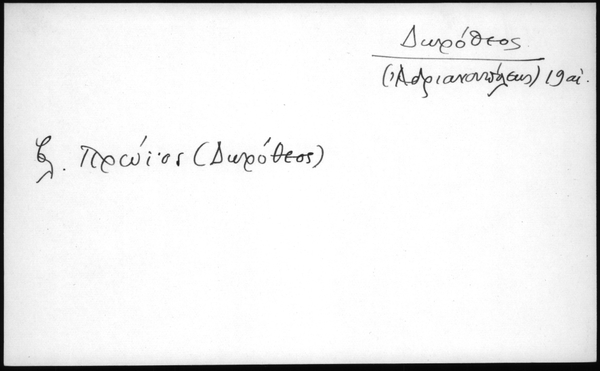 Δωρόθεος
(Ἀδριανουπόλεως) 19 αἰ.
βλ. Πρώϊος (Δωρόθεος)